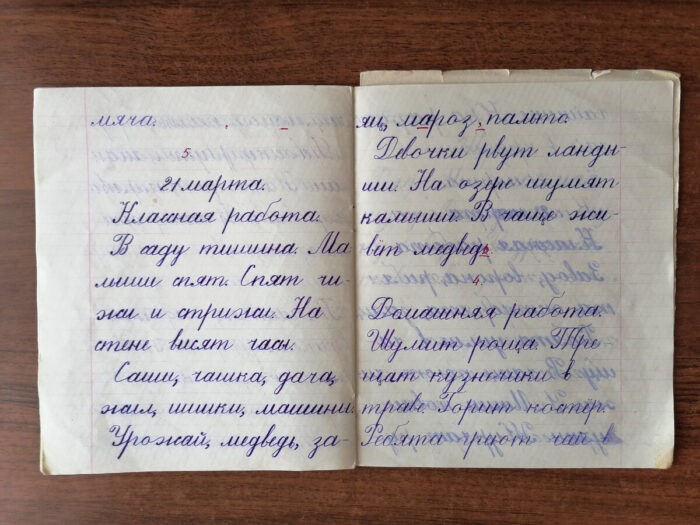 мяча.
5
21 марта.
Классная работа.
В саду тишина. Ма
лыши спят. Спят чи-
жи и стрижи. На
стене висят часы.
Саши, чашка, дача,
жил, шишки, машины.
Урожай, медведь, за-
яц, мароз, пальто
Девочки рвут ланды-
ши. На озере шумят
камыши. В чаще жи-
вёт медведь.
4.
Домашняя работа.
Шумит роща. Тре
щат кузнечики в
траве. Горит костёр.
Ребята греют чай в